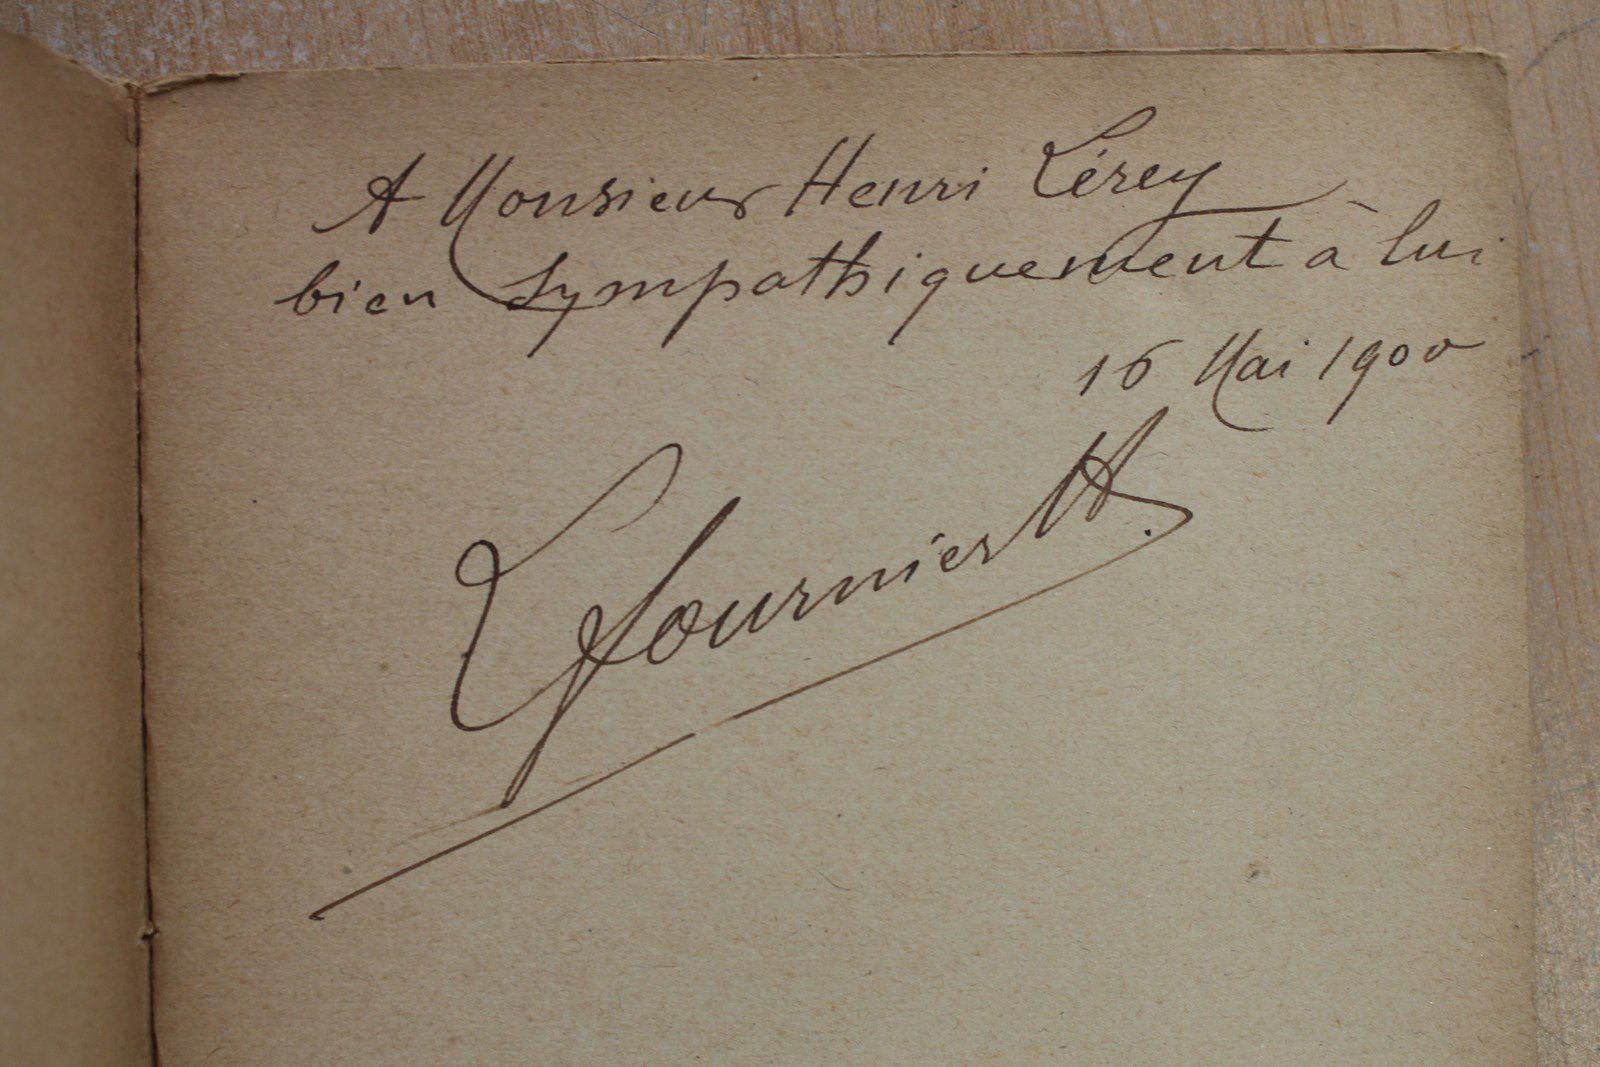 A Monsieur Henri Lérey
bien sympathiquement à lui
16 Mai 1900
Fournier